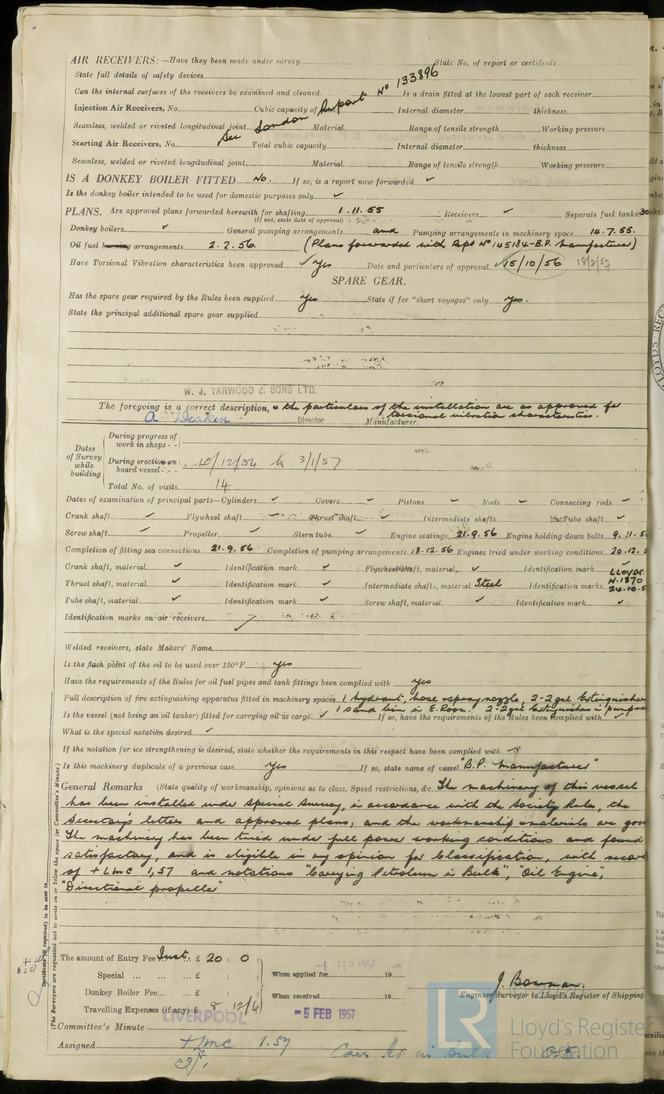 AIR RECEIVERS:—Have they been made under survey State No. of report or certificate
State full details of safety devices
Can the internal surfaces of the receivers be examined and cleaned Is a drain fitted at the lowest part of each receiver
See London Report No 133896
Injection Air Receivers, No. Cubic capacity of Internal diameter thickness
Seamless, welded or riveted longitudinal joint Material Range of tensile strength Working pressure
Starting Air Receivers, No. Total cubic capacity Internal diameter thickness
Seamless, welded or riveted longitudinal joint Material Range of tensile strength Working pressure
IS A DONKEY BOILER FITTED No. If so, is a report now forwarded ✓
Is the donkey boiler intended to be used for domestic purposes only ✓
PLANS. Are approved plans forwarded herewith for shafting 1.11.55 Receivers ✓ Separate fuel tanks
(If not, state date of approval)
Donkey boilers ✓ General pumping arrangements and Pumping arrangements in machinery space 14.7.55.
Oil fuel burning arrangements 2.2.56. (Plans forwarded with Rept No 145184-B.P. Manufacturer)
Have Torsional Vibration characteristics been approved ✓ Yes Date and particulars of approval ✓ 15/10/56 18/2/57
SPARE GEAR.
Has the spare gear required by the Rules been supplied Yes State if for "short voyages" only Yes.
State the principal additional spare gear supplied
W. J. YARWOOD & SONS LTD.
The foregoing is a correct description, & the particulars of the installation are as approved for
torsional vibration characteristics.
A Deakin Director Manufacturer.
Dates of Survey while building
During progress of work in shops
During erection on board vessel 10/12/54 to 3/1/57
Total No. of visits 14
Dates of examination of principal parts—Cylinders ✓ Covers ✓ Pistons ✓ Rods ✓ Connecting rods ✓
Crank shaft ✓ Flywheel shaft ✓ Thrust shaft ✓ Intermediate shafts Tube shaft ✓
Screw shaft ✓ Propeller ✓ Stern tube ✓ Engine seatings 21.9.56 Engine holding down bolts
Completion of fitting sea connections 21.9.56 Completion of pumping arrangements 18.12.56 Engines tried under working conditions 20.12.
Crank shaft, material ✓ Identification mark ✓ Flywheel shaft, material ✓ Identification mark ✓
Thrust shaft, material ✓ Identification mark ✓ Intermediate shafts, material Steel Identification marks LLOYDS N.1870 24.10.5
Tube shaft, material ✓ Identification mark ✓ Screw shaft, material ✓ Identification mark ✓
Identification marks on air receivers
✓
Welded receivers, state Makers' Name
Is the flash point of the oil to be used over 150°F. Yes
Have the requirements of the Rules for oil fuel pipes and tank fittings been complied with Yes
Full description of fire extinguishing apparatus fitted in machinery spaces 1 hydrant, hose & spray nozzle, 2-2 gal Extinguisher
1 sand bin in E. Room. 2-2 gal Extinguisher in
Is the vessel (not being an oil tanker) fitted for carrying oil as cargo ✓ If so, have the requirements of the Rules been complied with ✓
What is the special notation desired ✓
If the notation for ice strengthening is desired, state whether the requirements in this respect have been complied with ✓
Is this machinery duplicate of a previous case Yes If so, state name of vessel "B.P. Manufacturer"
General Remarks (State quality of workmanship, opinions as to class, Speed restrictions, &c. The machinery of this vessel
has been installed under Special Survey, in accordance with the Society Rules, the
Secretary's letters and approved plans, and the workmanship & materials are good
The machinery has been tried under full power working conditions and found
satisfactory, and is eligible in my opinion for Classification, with record
of + LMC 1,57 and notations "Carrying Petroleum in Bulk", "Oil Engine",
"Directional propeller"
(The Surveyors are requested not to write on or below the space for Committee's Minute.)
The amount of Entry Fee Inst. £ 20 : 0 : When applied for 1 FEB 1957 19
Special £
Donkey Boiler Fee £ When received 19
Travelling Expenses (if any) £ 8 12/6 -5 FEB 1957
J. Bowman.
Engineer Surveyor to Lloyd's Register of Shipping
LIVERPOOL
Committee's Minute
Assigned + LMC 1.57
LR Lloyd's Register Foundation